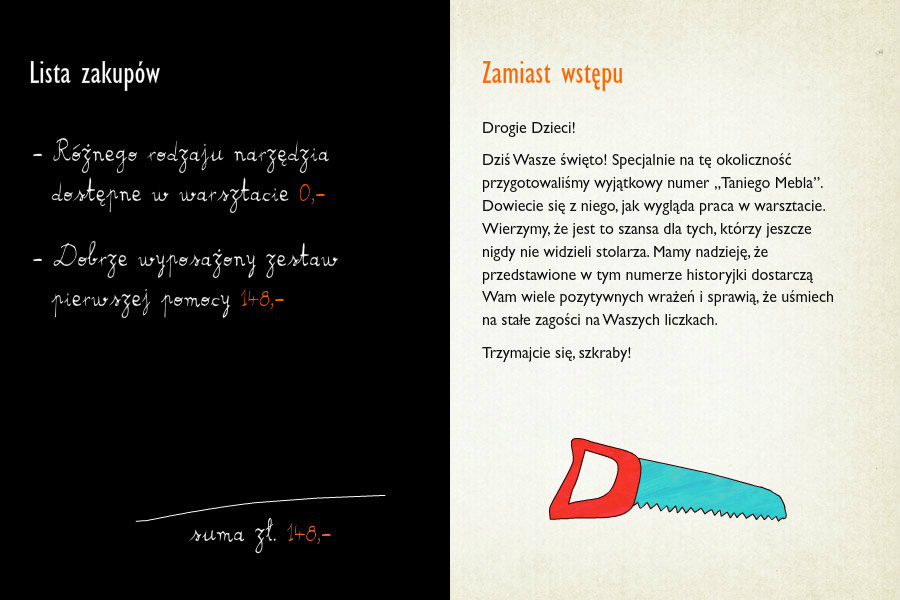 Lista zakupów
- Różnego rodzaju narzędzia
dostępne w warsztacie 0,-
- Dobrze wyposażony zestaw
pierwszej pomocy 148,-
suma zł. 148,-
Zamiast wstępu
Drogie Dzieci!
Dziś Wasze święto! Specjalnie na tę okoliczność
przygotowaliśmy wyjątkowy numer „Taniego Mebla”.
Dowiecie się z niego, jak wygląda praca w warsztacie.
Wierzymy, że jest to szansa dla tych, którzy jeszcze
nigdy nie widzieli stolarza. Mamy nadzieję, że
przedstawione w tym numerze historyjki dostarczą
Wam wiele pozytywnych wrażeń i sprawią, że uśmiech
na stałe zagości na Waszych liczkach.
Trzymajcie się, szkraby!